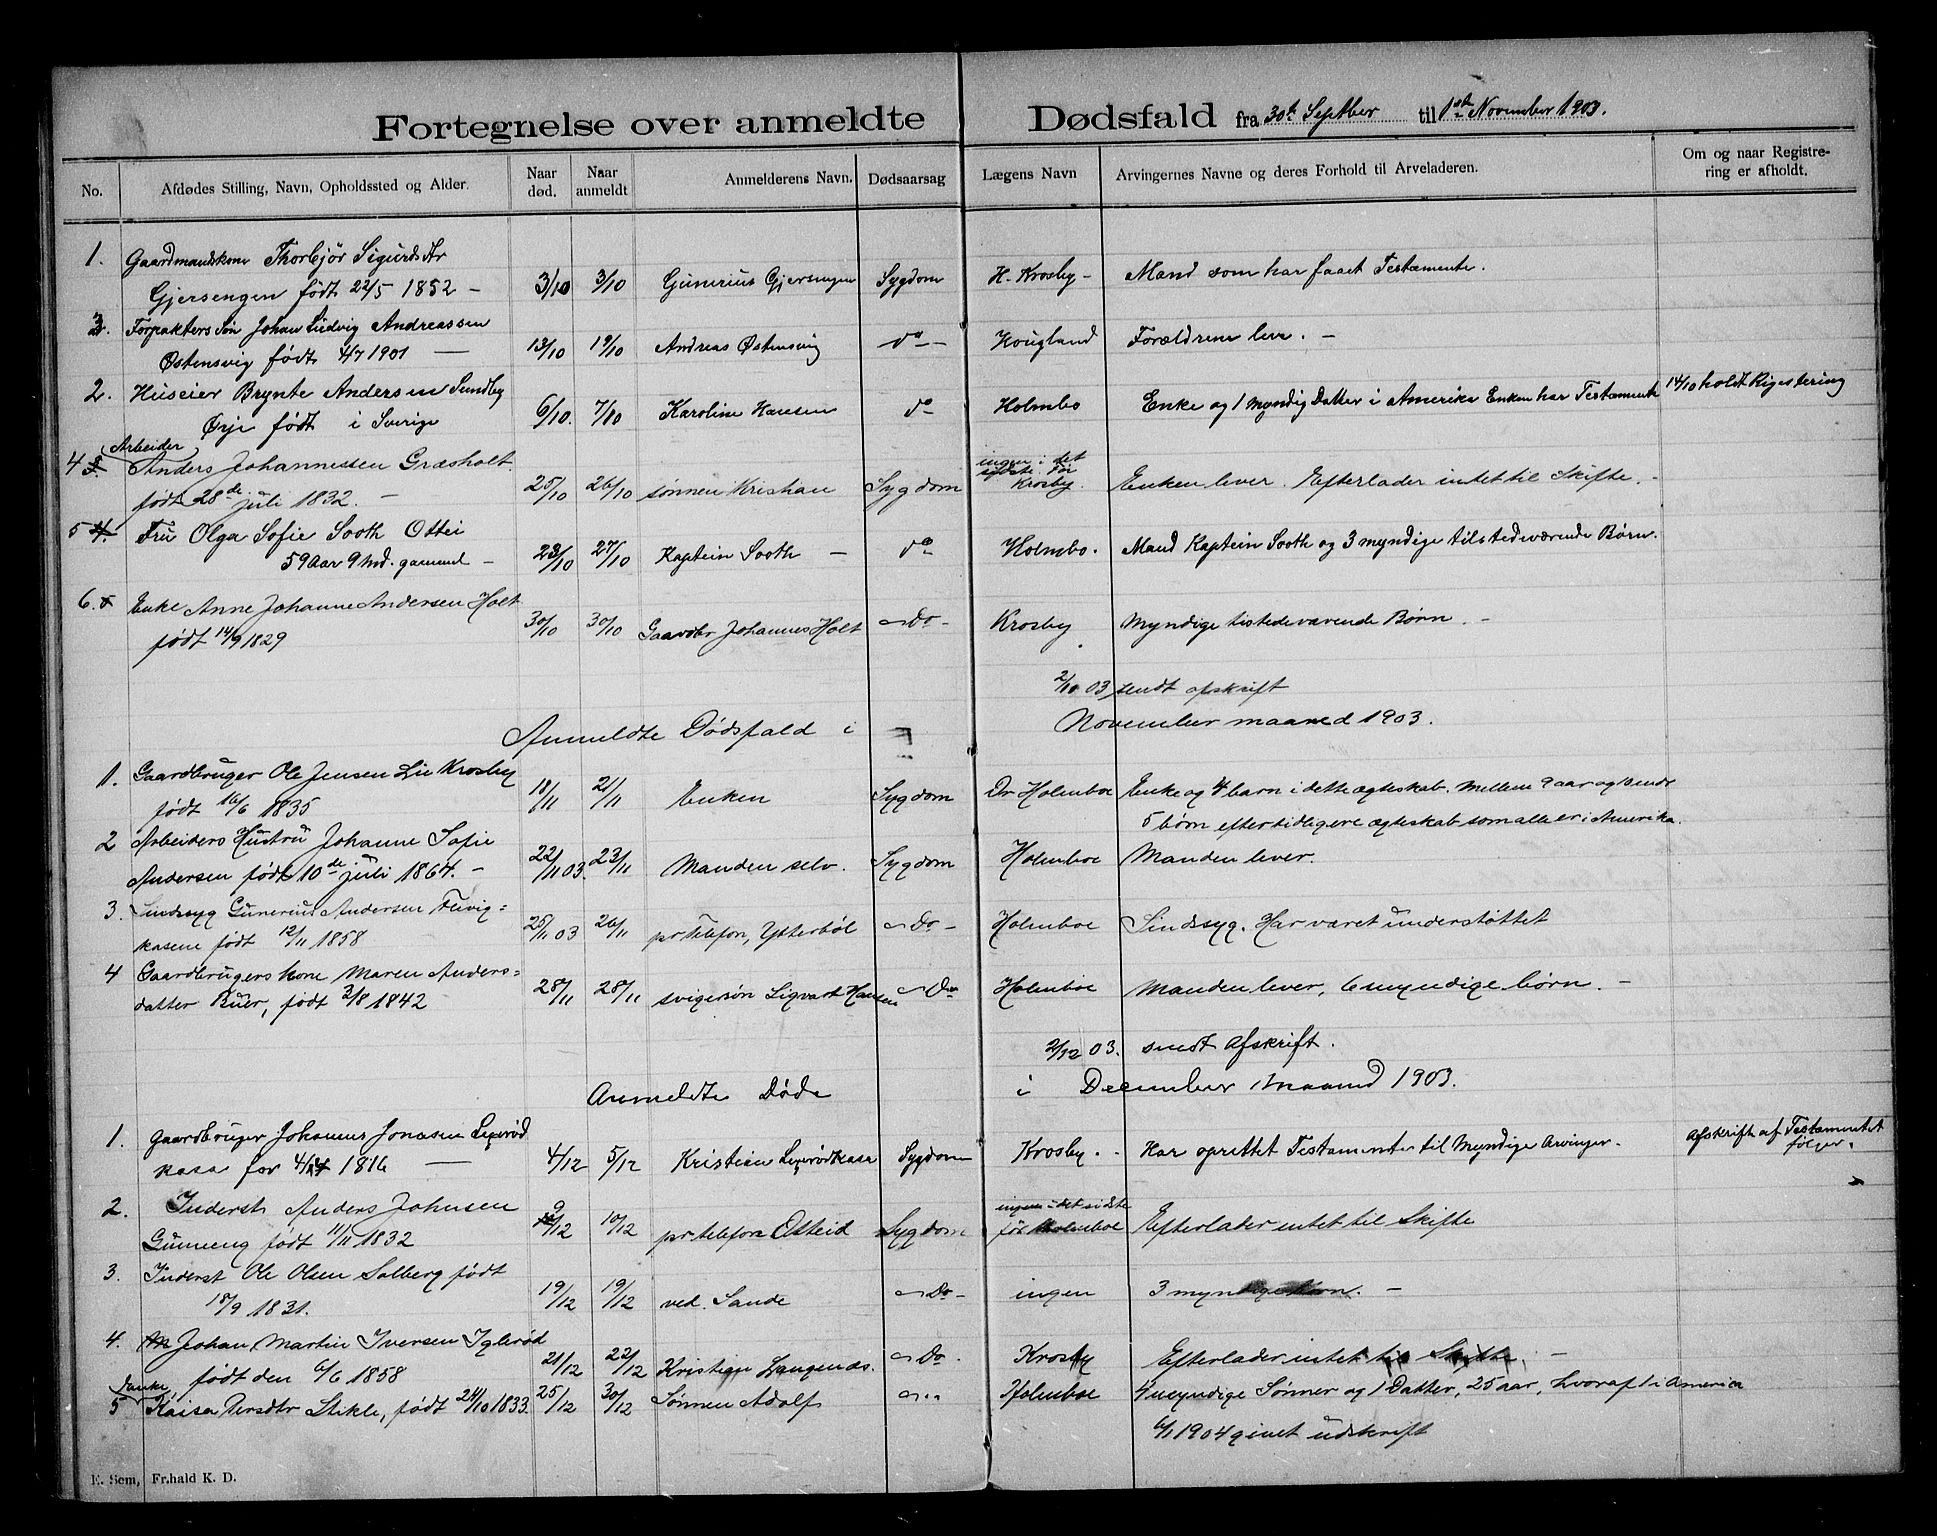 Fortegnelse over anmeldte Dødsfald fra 30te Septber til 1ste November 1903.
No. Afdødes Stilling, Navn, Opholdssted og Alder. Naar død. Naar anmeldt Anmelderens Navn. Dødsaarsag Lægens Navn Arvingernes Navne og deres Forhold til Arveladeren. Om og naar Registrering er afholdt.
1. Gaardmandskone Thorbjør Sigurdsdtr
Gjersengen født 22/5 1852 – 3/10 3/10 Gunerius Gjersengen Sygdom H. Krosby – Mand som har faaet Testamente.
3. Forpakters Søn Johan Ludvig Andreassen
Østensvig født 4/7 1901 — 13/10 19/10 Andreas Østensvig do – Hougland Forældrene leve. –
2. Huseier Brynte Andersen Sundby
Ørje født i Sverige 6/10. 7/10 Karoline Hansen do Holmbo Enke og 1 myndig Datter i Amerika Enken har Testamente 14/10 holdt Rigestering
4 Arbeider
Anders Johannessen Græsholt
født 28de juli 1832. – 25/10 26/10 sønnen Kristian Sygdom ingen i det sidste før Krosby. Enken lever. Efterlader intet til Skifte. –
5 4. Fru Olga Sofie Sooth Ottei
59 Aar 9 Md. gammel – 23/10 27/10 Kaptein Sooth – do Holmbo. Mand Kaptein Sooth og 3 myndige tilstedeværende Børn.
6. Enke Anne Johanne Andersen Holt
født 14/9 1829 30/10 30/10 Gaardbr Johannes Holt – Do – Krosby Myndige tistedeværende Børn. –
2/11 03 sendt afskrift
Anmeldte Dødsfald i November maaned 1903.
1. Gaardbruger Ole Jensen Lie Krosby
født 16/6 1835 18/11 21/11 Enken Sygdom Dr Holmboe Enke og 4 barn i dette ægteskab. mellem 9 aar og
5 børn efter tidligere ægteskab som alle er i Amerika.
2 Arbeiders Hustru Johanne Sofie
Andersen født 10de juli 1864. – 22/11 03. 23/11 Manden selv. Sygdom Holmboe Manden lever.
3. Sindssyg Gunerius Andersen
kasene født 12/11 1858 25/11 03 26/11 pr Telefon, Ytterbøl – Do – Holmboe Sindssyg. Har været understøttet
4 Gaardbrugerskone Maren Anders=
datter Buer, født 3/8 1842 28/11 28/11 svigersøn Sigvart Hansen – Do Holmboe Manden lever, 6 myndige børn. –
2/12 03. sendt Afskrift.
Anmeldte Døde i December maaned 1903.
1. Gaardbruger Johannes Jonasen
kasa før 1816 — 4/12 5/12 Kristian Sygdom Krosby. Har oprettet Testamente til Myndige Arvinger. Afskrift af Testamentet følger.
2. Inderst Anders Johnsen
født 11/11 1832 9/12 10/12 pr telefon Østeid Sygdom ingen i det sidste før Holmboe Efterlader intet til Skifte
3. Inderst Ole Olsen Solberg født
18/9 1831. 19/12 19/12 ved. Sande – Do – ingen 3 myndige Børn. –
4. Johan Martin Iversen Iglerød
født den 6/6 1858 21/12 22/12 Kristian Langenæs. – Do. Krosby Efterlader intet til Skifte. –
Enke,
5 Kaisa Persdtr Stikle, født 24/10 1833. 25/12 30/12 Sønnen Adolf – " Holmboe 4 myndige Sønner og 1 Datter, 25 aar, hvoraf 1 i America
6/1 1904 givet udskrift
E. Sem, Fr.hald K. D.